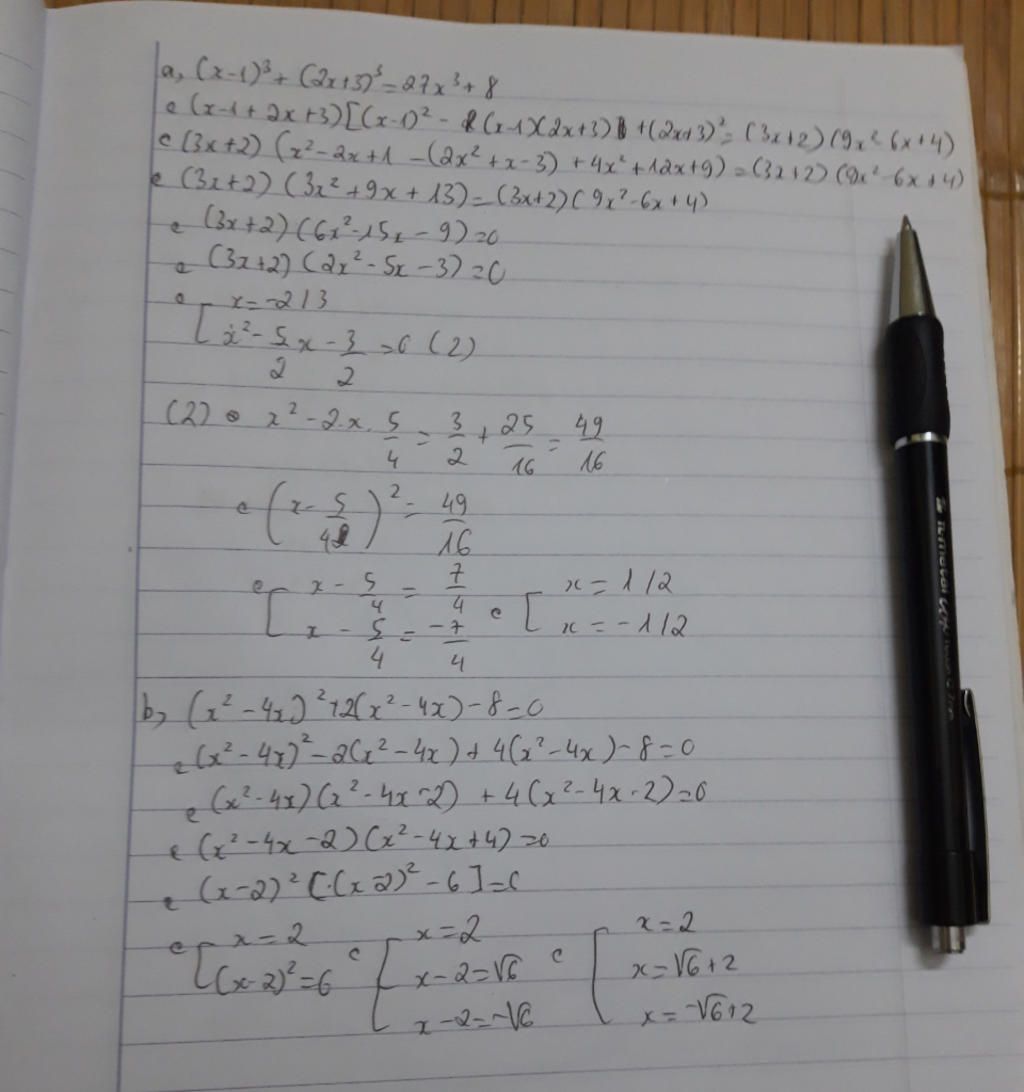 a, (x-1)³ + (2x+3)³ = 27x³ + 8
(x-1+2x+3)[(x-1)² - (x-1)(2x+3) + (2x+3)² = (3x+2)(9x²-6x+4)
(3x+2) (x²-2x+1 -(2x²+x-3) + 4x²+12x+9) = (3x+2)(9x²-6x+4)
(3x+2) (3x²+9x+13) = (3x+2)(9x²-6x+4)
(3x+2)(6x²-15x-9)=0
(3x+2)(2x²-5x-3)=0
x=-2/3
x² - 5/2 x - 3/2 = 0 (2)
(2) x² - 2.x. 5/4 = 3/2 + 25/16 = 49/16
(x - 5/4)² = 49/16
x - 5/4 = 7/4 x = 1/2
x - 5/4 = -7/4 x = -1/2
b, (x²-4x)²+2(x²-4x)-8=0
(x²-4x)²-2(x²-4x)+4(x²-4x)-8=0
(x²-4x)(x²-4x-2) + 4(x²-4x-2)=0
(x²-4x-2)(x²-4x+4)=0
(x-2)²[(x-2)²-6]=0
x=2 x=2 x=2
(x-2)²=6 x-2=√6 x=√6+2
x-2=-√6 x=-√6+2